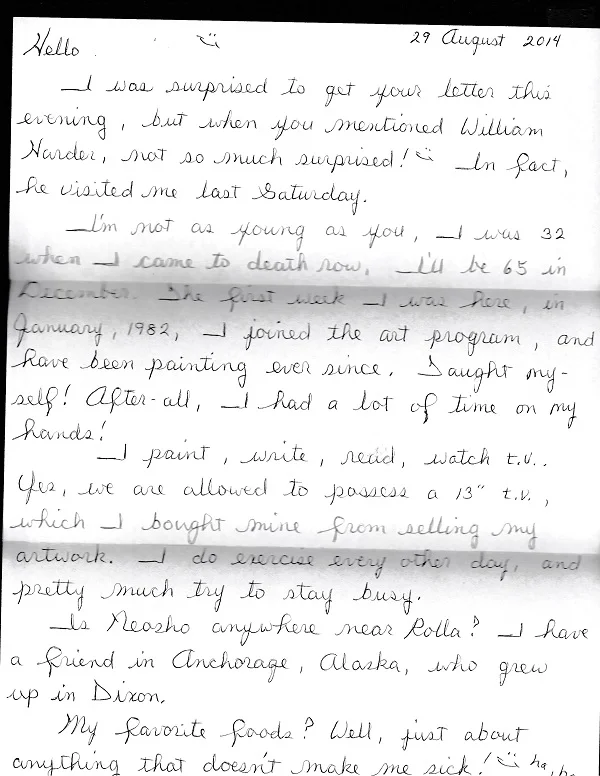 29 August 2014
Hello
I was surprised to get your letter this
evening, but when you mentioned William
Harder, not so much surprised! In fact,
he visited me last Saturday.
I'm not as young as you, I was 32
when I came to death row. I'll be 65 in
December. The first week I was here, in
January, 1982, I joined the art program, and
have been painting ever since. Taught my-
self! After-all, I had a lot of time on my
hands!
I paint, write, read, watch t.v..
Yes, we are allowed to possess a 13" t.v.,
which I bought mine from selling my
artwork. I do exercise every other day, and
pretty much try to stay busy.
Is Neosho anywhere near Rolla? I have
a friend in Anchorage, Alaska, who grew
up in Dixon.
My favorite foods? Well, just about
anything that doesn't make me sick! ha, ha